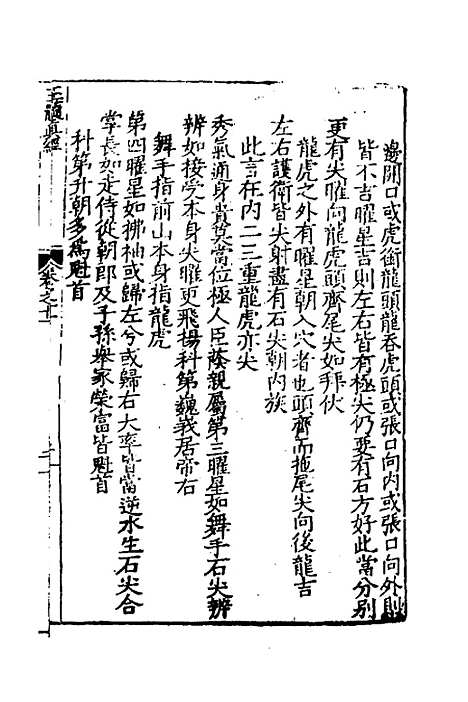 邊開口或虎銜龍頭龍吞虎頭或張口向內或張口向外則
皆不吉曜星吉則左右皆有極尖仍要有石方好此當分別
更有尖曜向龍虎頭齊尾尖如拜伏
龍虎之外有曜星朝入穴者也頭齊而拖尾尖向後龍吉
左右護衛皆尖射盡有石尖朝內族
此言在內二三重龍虎亦尖
秀氣通身貴莫當位極人臣蔭親屬第三曜星如舞手石尖辨
辨如接受本身尖曜更飛揚科第巍峩居帝右
舞手指前山本身指龍虎
第四曜星如拂柚或歸左兮或歸右大率皆當逆水生石尖合
掌長如走侍從朝郎及子孫舉家榮富皆魁首
科第升朝多爲魁首
玉髓眞經
卷之十